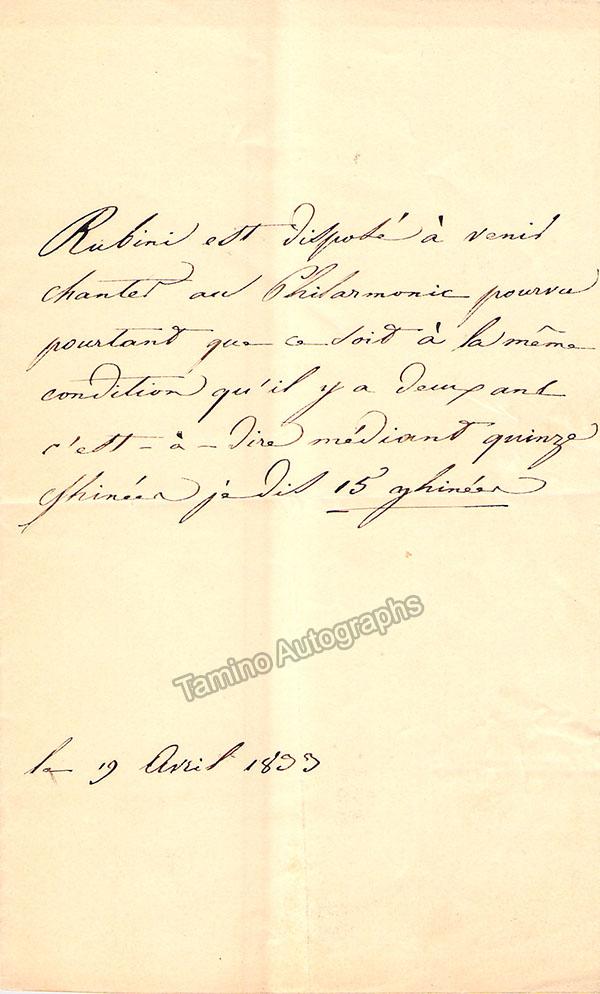 Rubini est disposé à venir
chanter au Philarmonic pourvu
pourtant que ce soit à la même
condition qu'il y a deux ans
c'est-à-dire médiant quinze
ghinées je dis 15 ghinées
Tamino Autographs
le 19 Avril 1833